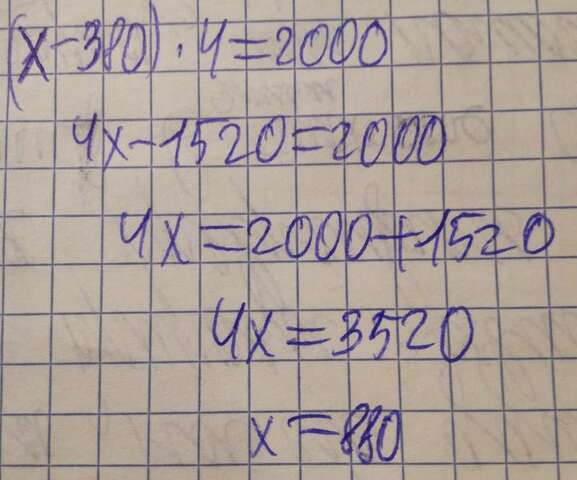 (x-380)·4=2000
4x-1520=2000
4x=2000+1520
4x=3520
x=880